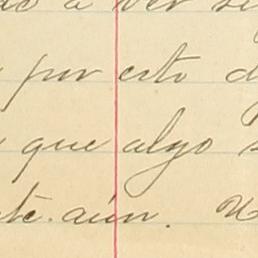 a ver si
por esto d
que algo s
te. aún. U